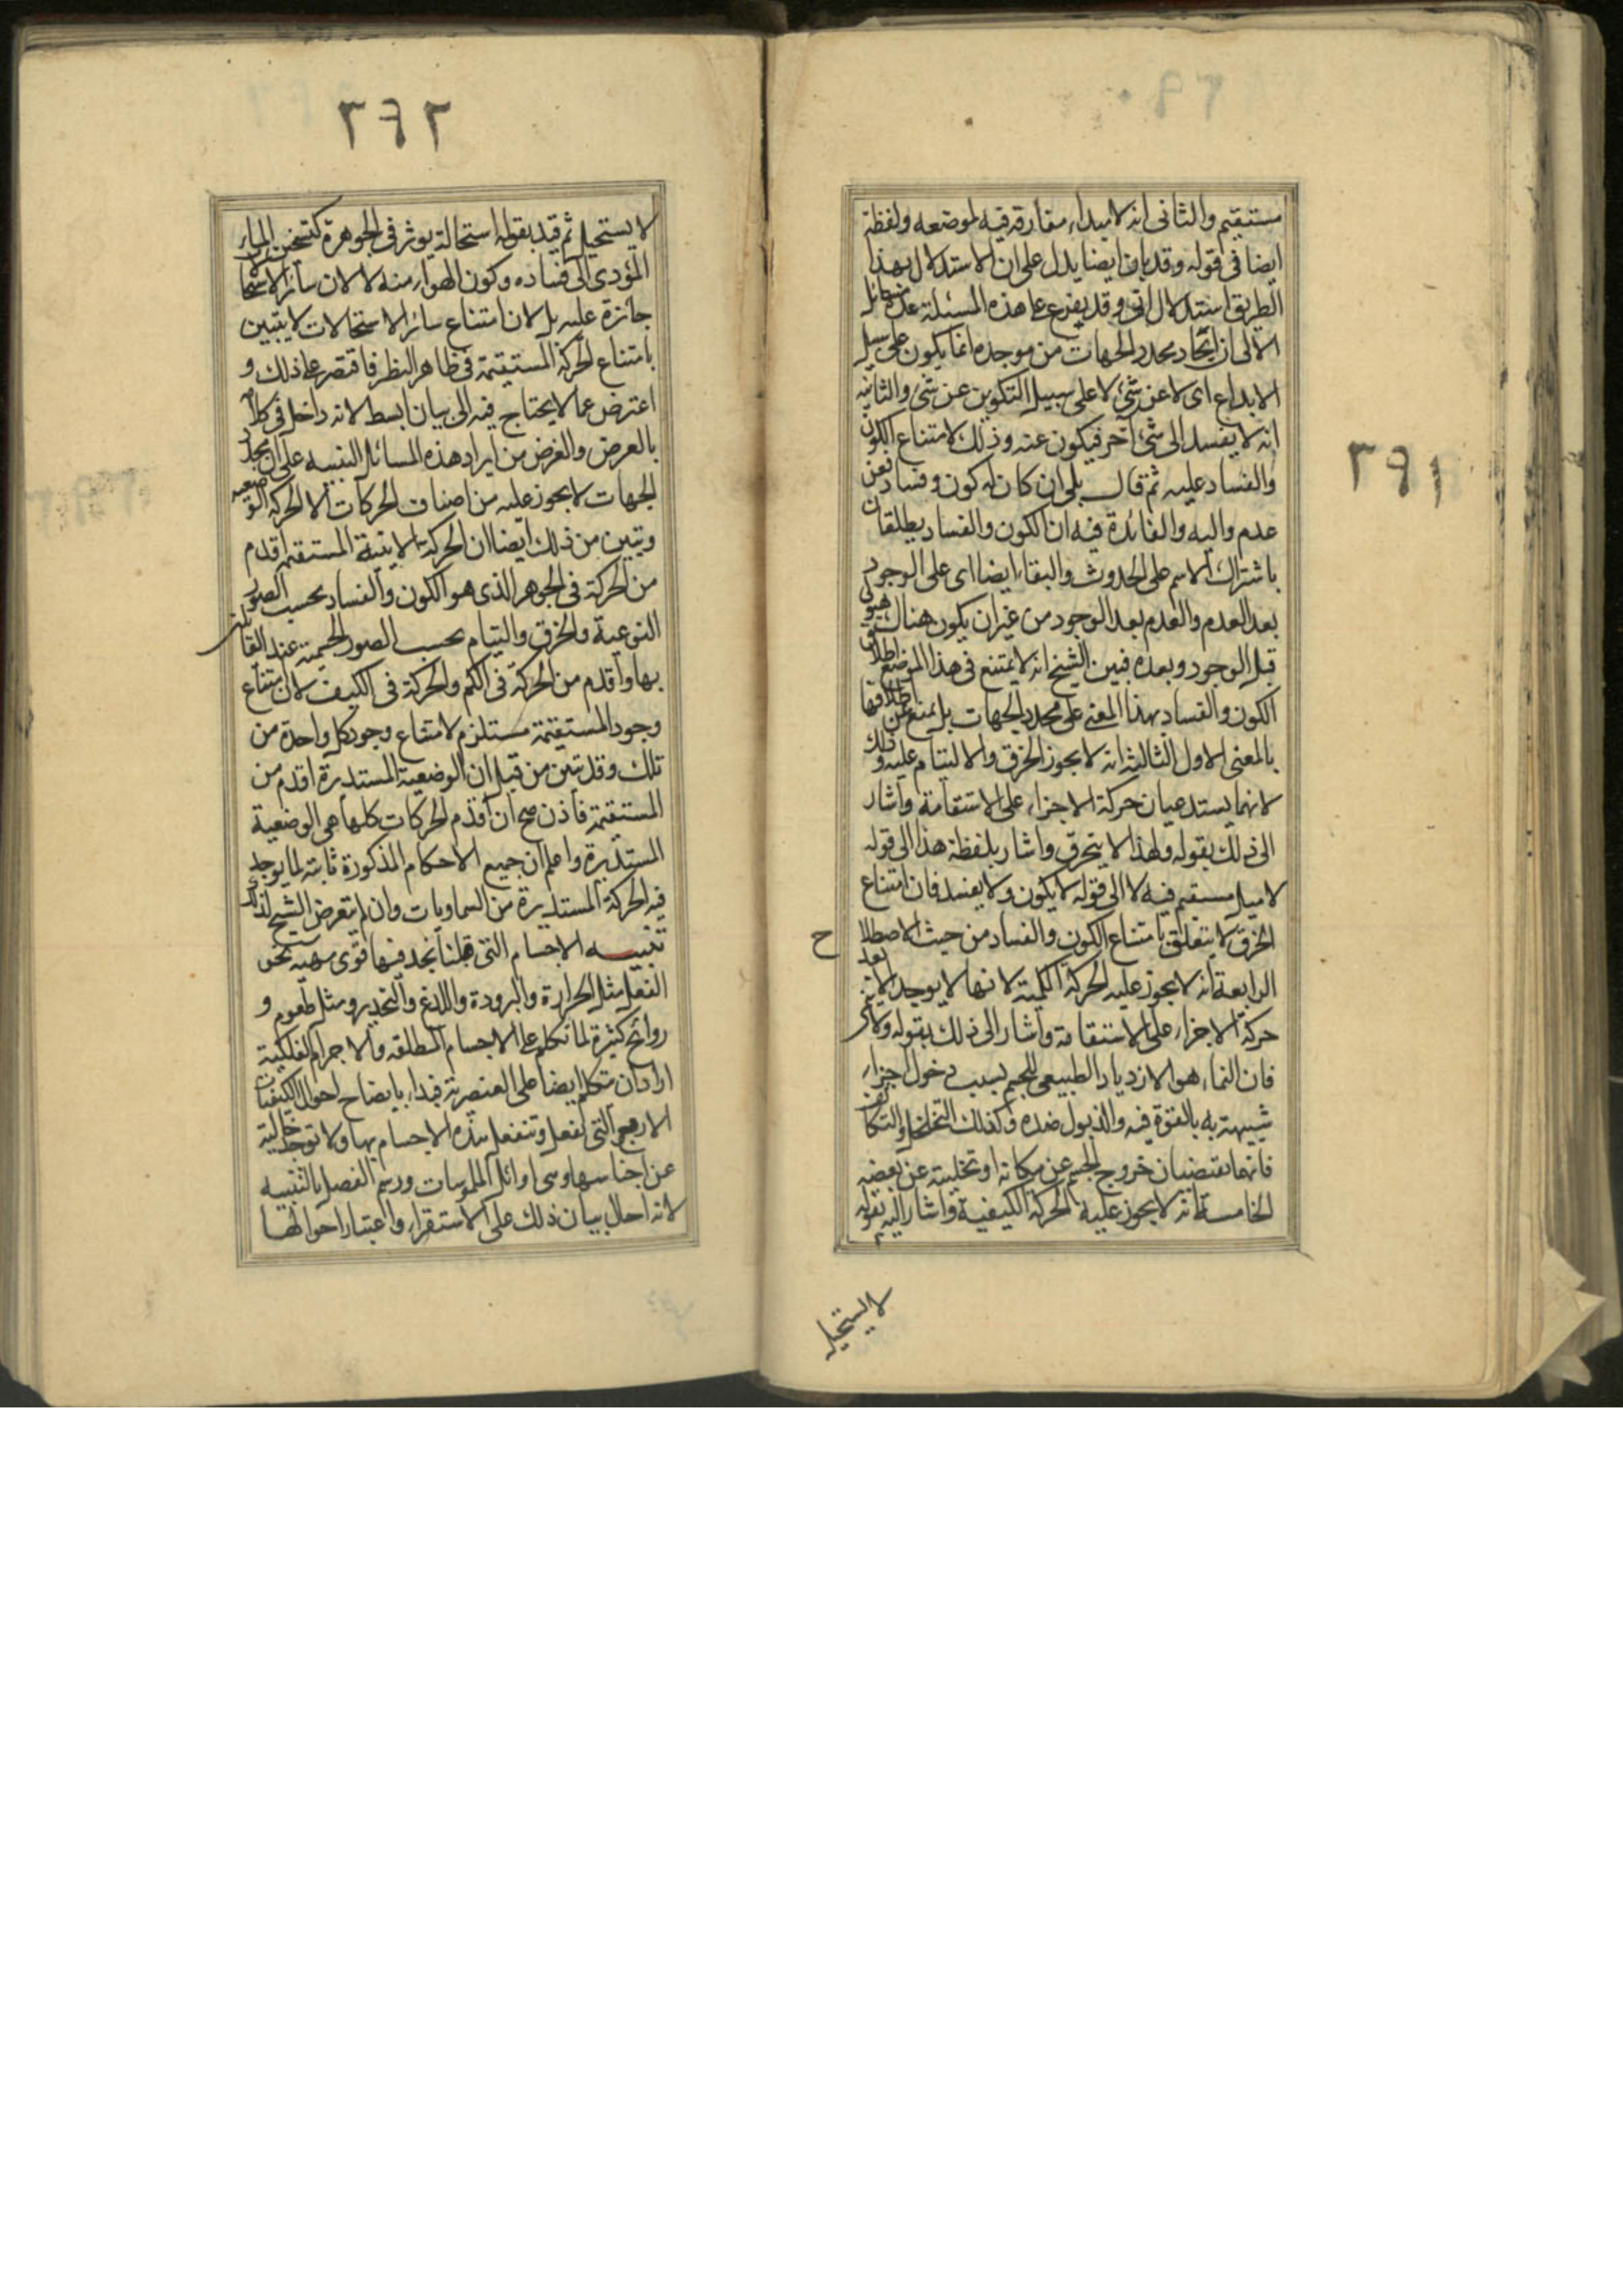 ٢٩١
مستقيم والثانى انه لا مبداء مفارقة فيه لموضعه ولفظة
ايضا فى قوله وقد بان ايضا يدل على ان الاستدلال بهذا
الطريق استدلال انى وقد يفرع على هذه المسئلة عدة مسائل
الاولى ان ايجاد محدد الجهات من موجده انما يكون على سبيل
الابداع اى لا عن شئ لا على سبيل التكوين عن شئ والثانية
انه لا يفسد الى شئ آخر فيكون عنه وذلك لامتناع الكون
والفساد عليه ثم قال بلى ان كان له كون وفساد فعن
عدم واليه والفائدة فيه ان الكون والفساد يطلقان
باشتراك الاسم على الحدوث والبقاء ايضا اى على الوجود
بعد العدم والعدم بعد الوجود من غير ان يكون هناك هيولى
قبل الوجود وبعده فبين الشيخ انه لا يمتنع فى هذا الموضع اطلاق
الكون والفساد بهذا المعنى على محدد الجهات بل يمنع عن اطلاقها
بالمعنى الاول الثالثة انه لا يجوز الخرق والالتيام عليه وذلك
لانهما يستدعيان حركة الاجزاء على الاستقامة واشار
الى ذلك بقوله ولهذا لا يتخرق واشار بلفظة هذا الى قوله
لا ميل مستقيم فيه لا الى قوله لا يكون ولا يفسد فان امتناع
الخرق لا يتعلق بامتناع الكون والفساد من حيث الاصطلا
ح
الرابعة انه لا يجوز عليه الحركة الكمية لانها لا يوجد الا بعد
حركة الاجزاء على الاستقامة واشار الى ذلك بقوله ولا
فان النماء هو الازدياد الطبيعى للجسم بسبب دخول اجزاء
شبيهة به بالقوة فيه والذبول ضده وكذلك التخلخل والتكاثف
فانهما يقتضيان خروج الجسم عن مكانه او تخلية عن بعضه
الخامسة انه لا يجوز عليه الحركة الكيفية واشار اليه بقوله
لا يستحيل
٢٩٢
لا يستحيل ثم قيد بقوله استحالة يوثر فى الجوهرة كتسخن الماء
المؤدى الى فساده وكون الهواء منه لا لان سائر الاستحالا
جائزة عليه بل لان امتناع سائر الاستحالات لا يتبين
بامتناع الحركة المستقيمة فى ظاهر النظر فاقتصر على ذلك و
اعترض عما لا يحتاج فيه الى بيان ابسط لانه داخل فى كلامه
بالعرض والغرض من ايراد هذه المسائل التنبيه على ان محدد
الجهات لا يجوز عليه من اصناف الحركات الا الحركة الوضعية
وتبين من ذلك ايضا ان الحركة الاينية المستقيمة اقدم
من الحركة فى الجوهر الذى هو الكون والفساد بحسب الصور
النوعية والخرق والتيام بحسب الصور الجسمية عند القائلين
بها واقدم من الحركة فى الكم والحركة فى الكيف لان امتناع
وجود المستقيمة مستلزم لامتناع وجود كل واحدة من
تلك وقد تبين من قبل ان الوضعية المستديرة اقدم من
المستقيمة فاذن صح ان اقدم الحركات كلها هى الوضعية
المستديرة واعلم ان جميع الاحكام المذكورة ثابتة لما يوجد
فيه الحركة المستديرة من السماويات وان لم يتعرض الشيخ لذلك
تنبيه الاجسام التى قبلنا نجد فيها قوى مهيئة نحو
الفعل مثل الحرارة والبرودة واللذع والتخدير ومثل طعوم و
روائح كثيرة لما تكلم على الاجسام المطلقه والاجرام الفلكية
اراد ان يتكلم ايضا على العنصرية فبدا بايضاح احوال الكيفيات
الاربع التى تفعل وتنفعل هذه الاجسام بها ولا توجد خالية
عن اجناسها وهى اوائل الملموسات ورسم الفصل بالتنبيه
لانه احال بيان ذلك على الاستقراء واعتبار احوالها